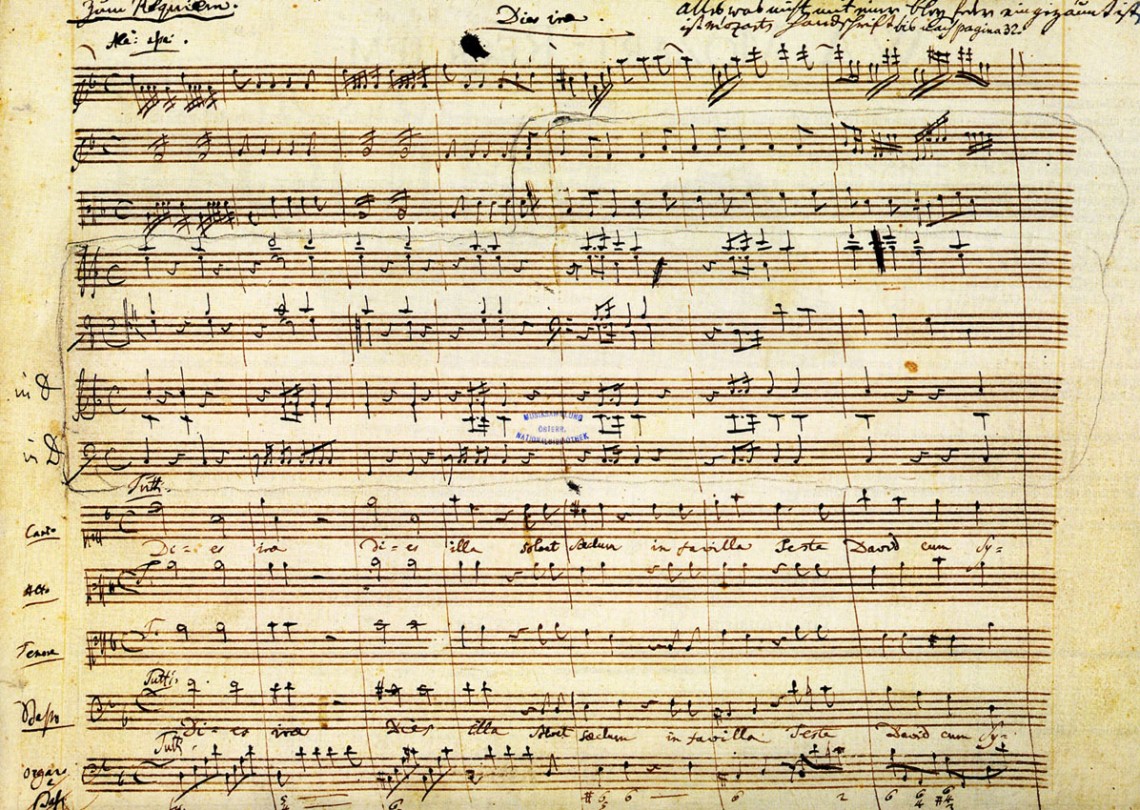 Zum Requiem.
Dies irae
Alles was nicht mit einer Bley feder eingezäumt ist
ist Mozarts Handschrift bis auf pagina 32.
Alľ: assai.
in D
MUSIKSAMMLUNG
ÖSTERR.
NATIONALBIBLIOTHEK
in D
Tutti.
Canto
Di = es ira di = es illa solvet sæclum in favilla Teste David cum Sy=
Alto
T.
Tenore
T.
Tutti.
Basso
Di = es ira Dies illa Solvet sæclum in favilla Teste David cum Sy=
Tutti
Organo
e
Bassi